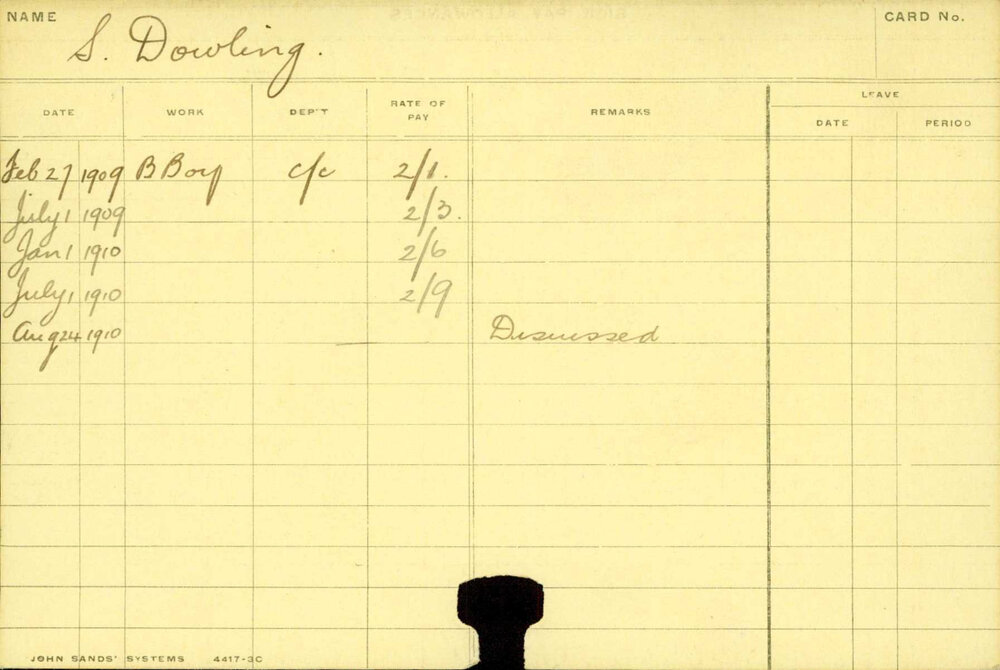 NAME
S. Dowling.
CARD No.
DATE WORK DEP'T RATE OF PAY REMARKS LEAVE
DATE PERIOD
Feb 27 1909 B Boy c/c 2/1.
July 1 1909 2/3.
Jan 1 1910 2/6
July 1 1910 2/9
Aug 24 1910 Dismissed
JOHN SANDS' SYSTEMS 4417-3C